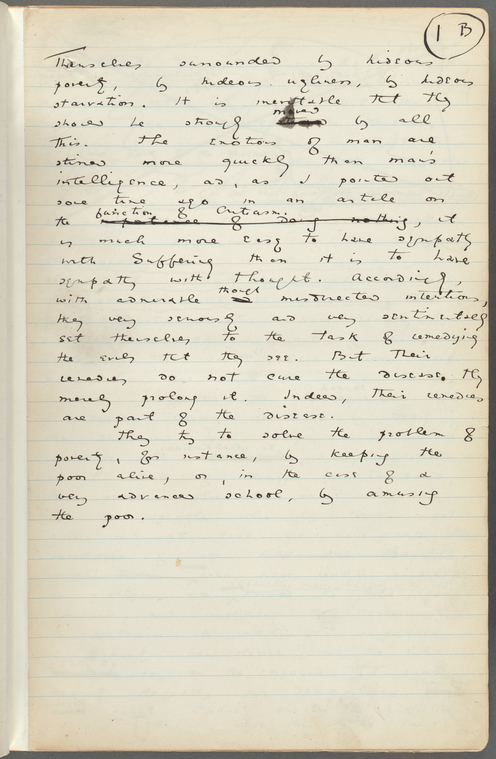 1 B
Themselves surrounded by hideous
poverty, by hideous ugliness, by hideous
starvation. It is inevitable that they
moved
should be strongly by all
this. The emotions of man are
stirred more quickly than man's
intelligence, and, as I pointed out
some time ago in an article on
function of Criticism
the importance of doing nothing, it
is much more easy to have sympathy
with Suffering than it is to have
sympathy with thought. Accordingly,
though
with admirable misdirected intentions,
they very seriously and very sentimentally
set themselves to the task of remedying
the evils that they see. But their
remedies do not cure the disease. they
merely prolong it. Indeed, their remedies
are part of the disease.
They try to solve the problem of
poverty, for instance, by keeping the
poor alive, or, in the case of a
very advanced school, by amusing
the poor.